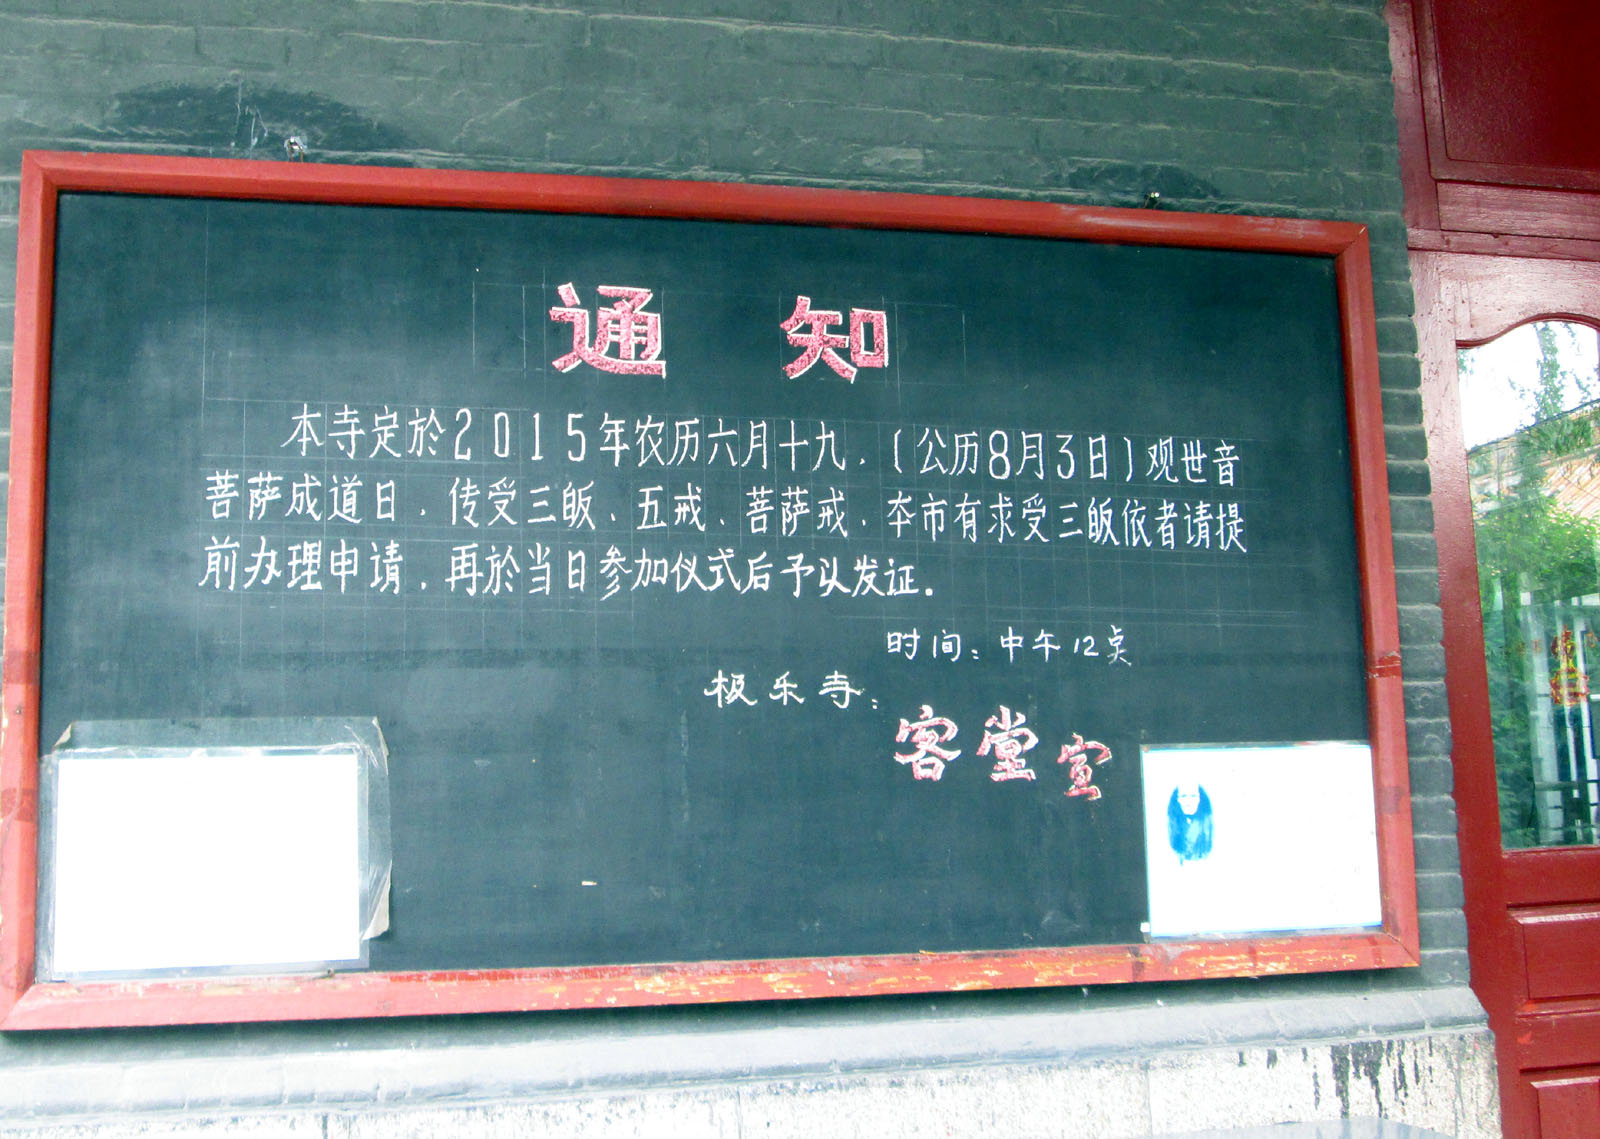 通 知
本寺定於2015年农历六月十九，(公历8月3日)观世音
菩萨成道日，传受三皈、五戒、菩萨戒，本市有求受三皈依者请提
前办理申请，再於当日参加仪式后予以发证。
时间：中午12点
极乐寺：
客堂宣